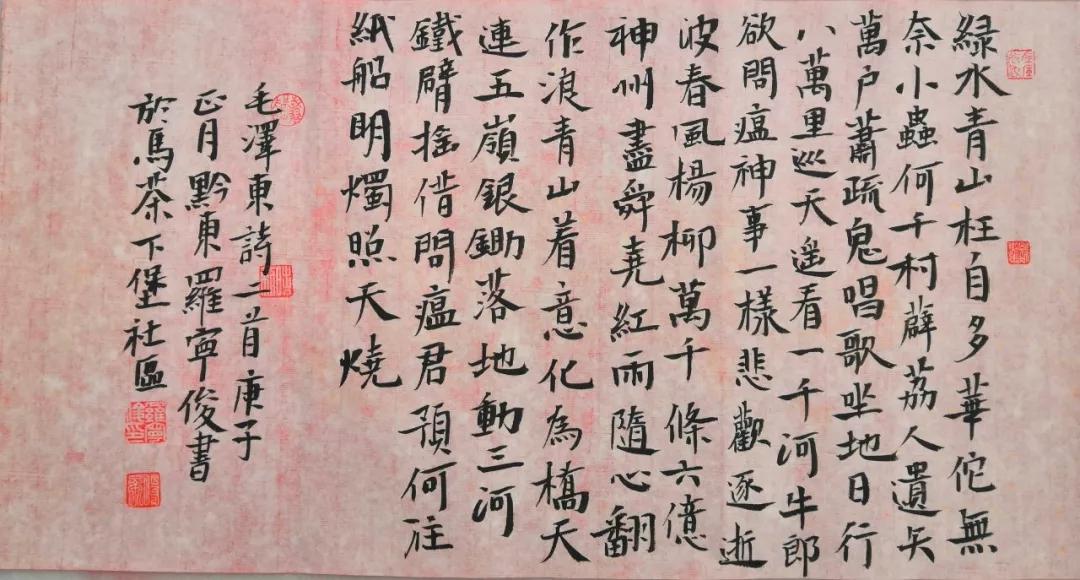 緑水青山枉自多華佗無
奈小蟲何千村薜荔人遺矢
萬户蕭疏鬼唱歌坐地日行
八萬里巡天遥看一千河牛郎
欲問瘟神事一樣悲歡逐逝
波春風楊柳萬千條六億
神州盡舜堯紅雨隨心翻
作浪青山着意化為橋天
連五嶺銀鋤落地動三河
鐵臂摇借問瘟君預何往
紙船明燭照天燒
毛澤東詩二首庚子
正月黔東羅寧俊書
於馬茶下堡社區